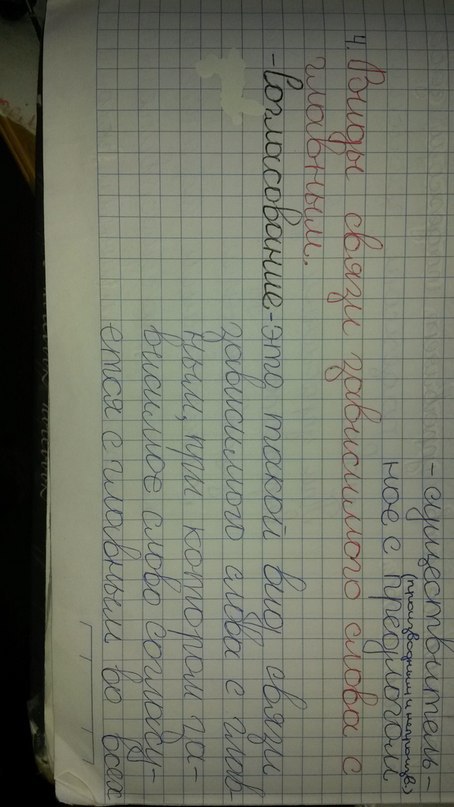 - существитель-
ное с предлогом
(производным и непроизв.)
4. Виды связи зависимого слова с
главным.
- Согласование - это такой вид связи
зависимого слова с глав
ным, при котором за-
висимое слово согласу-
ется с главным во всех